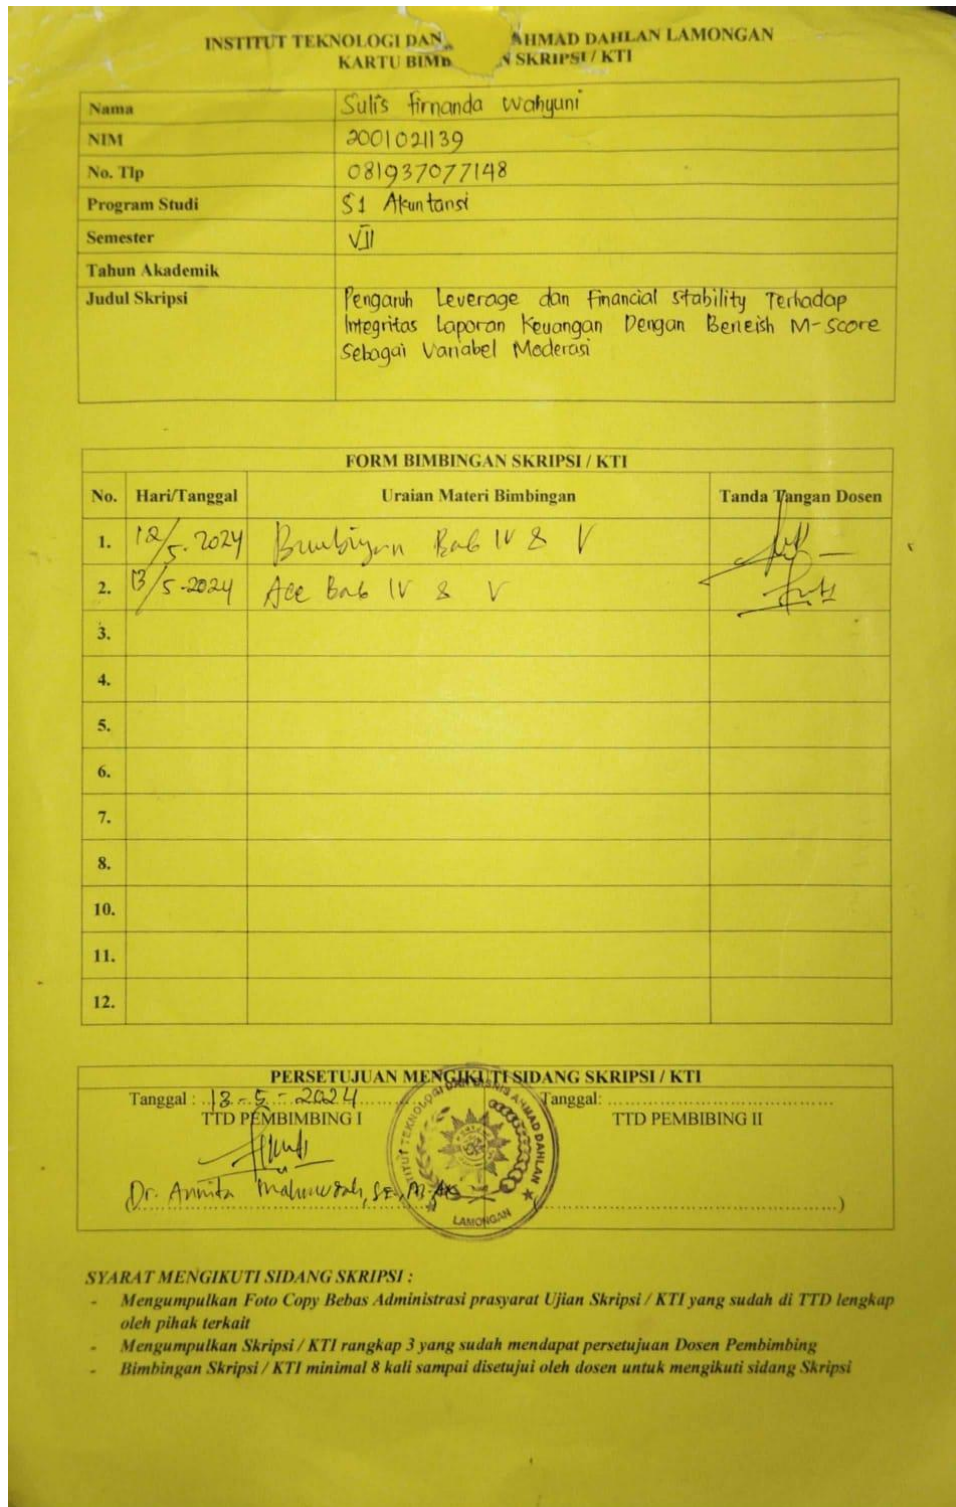 INSTITUT TEKNOLOGI DAN AHMAD DAHLAN LAMONGAN
KARTU BIMB N SKRIPSI / KTI
Nama Sulis firnanda wahyuni
NIM 2001021139
No. Tlp 081937077148
Program Studi S1 Akuntansi
Semester VII
Tahun Akademik
Judul Skripsi Pengaruh Leverage dan Financial Stability Terhadap
Integritas Laporan Keuangan Dengan Beneish M-Score
Sebagai Variabel Moderasi
FORM BIMBINGAN SKRIPSI / KTI
No. Hari/Tanggal Uraian Materi Bimbingan Tanda Tangan Dosen
1. 12/5-2024 Bimbingan Bab IV & V
2. 13/5-2024 Acc Bab IV & V
3.
4.
5.
6.
7.
8.
10.
11.
12.
PERSETUJUAN MENGIKUTI SIDANG SKRIPSI / KTI
Tanggal : 13-5-2024 Tanggal:
TTD PEMBIMBING I TTD PEMBIBING II
INSTITUT TEKNOLOGI DAN BISNIS AHMAD DAHLAN
LAMONGAN
(Dr. Annita , SE., M.Ak (....)
SYARAT MENGIKUTI SIDANG SKRIPSI :
- Mengumpulkan Foto Copy Bebas Administrasi prasyarat Ujian Skripsi / KTI yang sudah di TTD lengkap
oleh pihak terkait
- Mengumpulkan Skripsi / KTI rangkap 3 yang sudah mendapat persetujuan Dosen Pembimbing
- Bimbingan Skripsi / KTI minimal 8 kali sampai disetujui oleh dosen untuk mengikuti sidang Skripsi